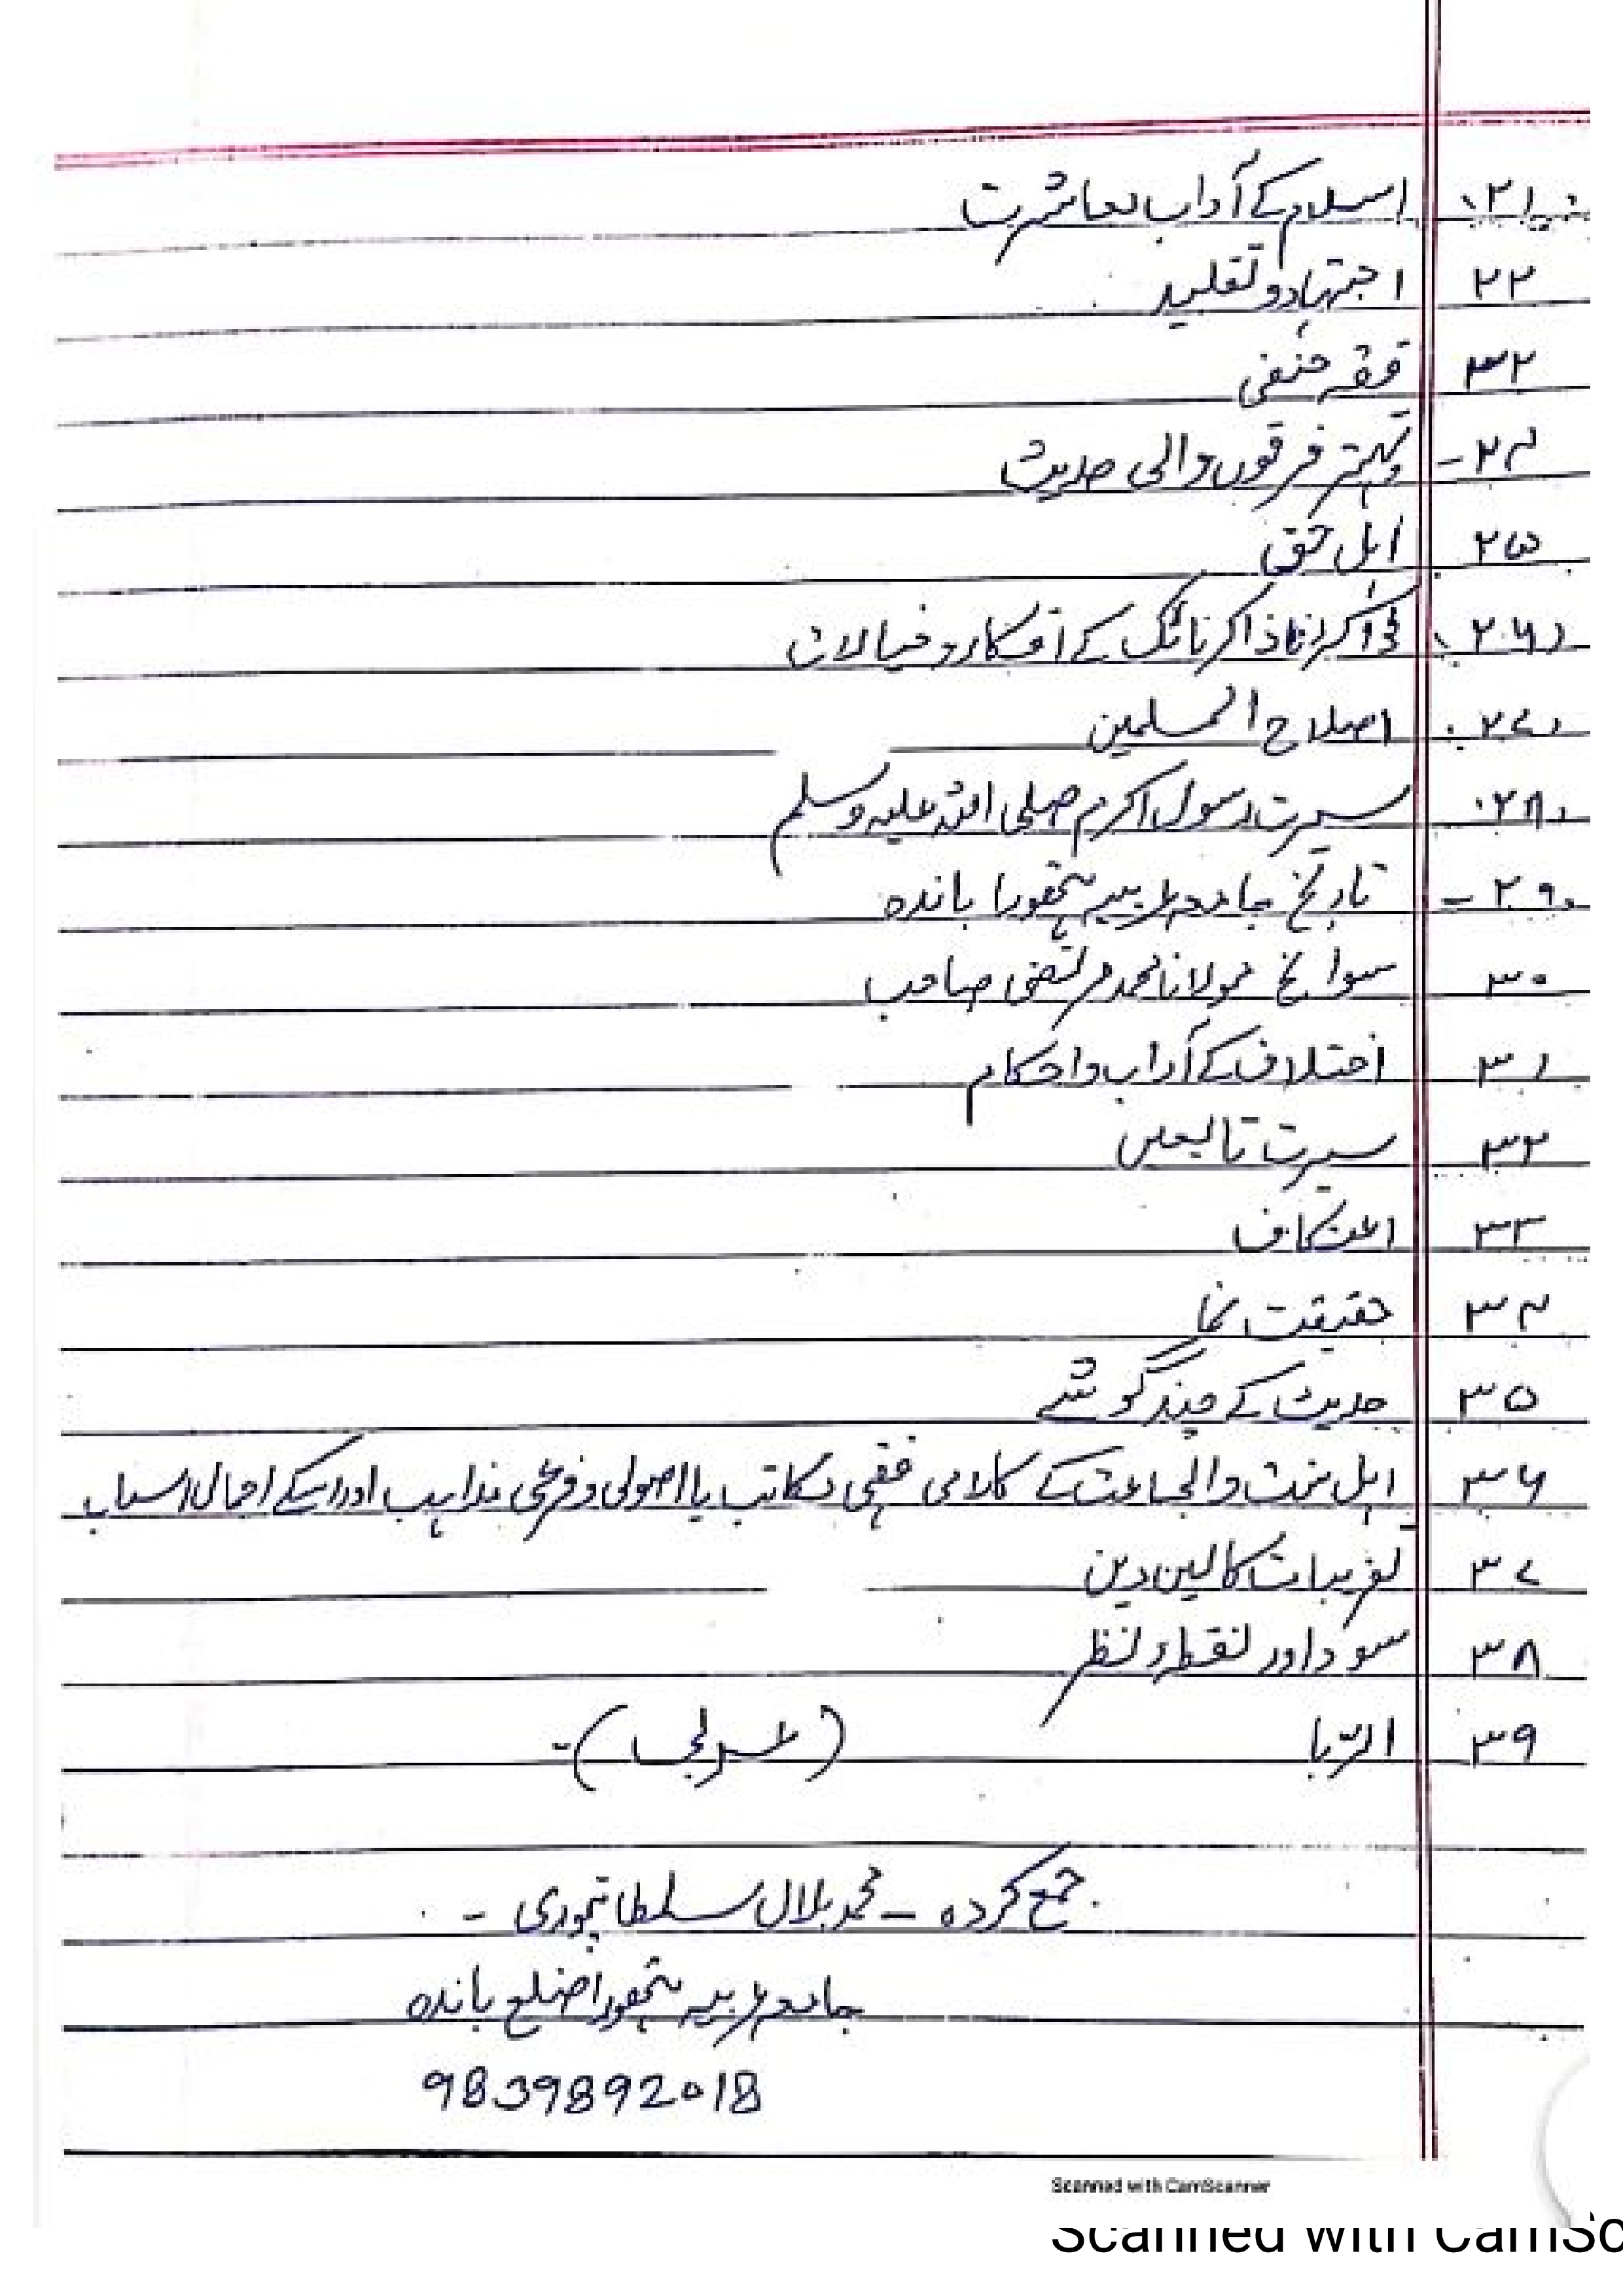 ۲۱ اسلام کے آداب معاشرت
۲۲ اجتہاد و تقلید
۲۳ فقہ حنفی
۲۴- بہتر فرقوں والی حدیث
۲۵ اہل حق
۲۶ ڈاکٹر ذاکر نائک کے افکار و خیالات
۲۷ اصلاح المسلمین
۲۸ سیرت رسول اکرم صلی اللہ علیہ وسلم
۲۹- تاریخ جامعہ عربیہ ہتھورا باندہ
۳۰ سوانح مولانا محمد مرتضی صاحب
۳۱ اختلاف کے آداب و احکام
۳۲ سیرت تابعین
۳۳ اعتکاف
۳۴ حقیقت نما
۳۵ حدیث کے چند گوشے
۳۶ اہل سنت والجماعت کے کلامی فقہی مکاتب یا اصولی و فرعی مذاہب اور اسکے اجمالی اسباب
۳۷ تقریبات کا لین دین
۳۸ سود اور نقطۂ نظر
۳۹ الرّبا (عربی) -
جمع کردہ - محمد بلال سلطانپوری -
جامعہ عربیہ ہتھورا ضلع باندہ
9839892018
Scanned with CamScanner
Scanned with CamSc